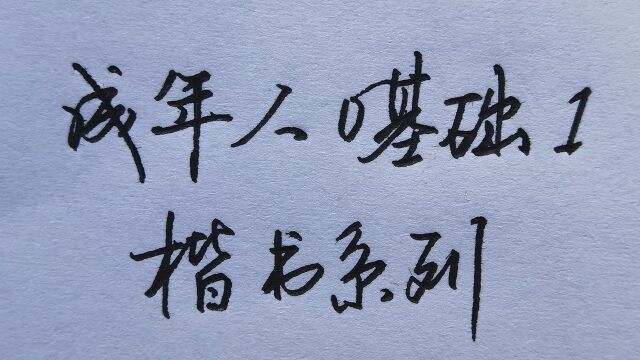 成年人0基础1
楷书系列